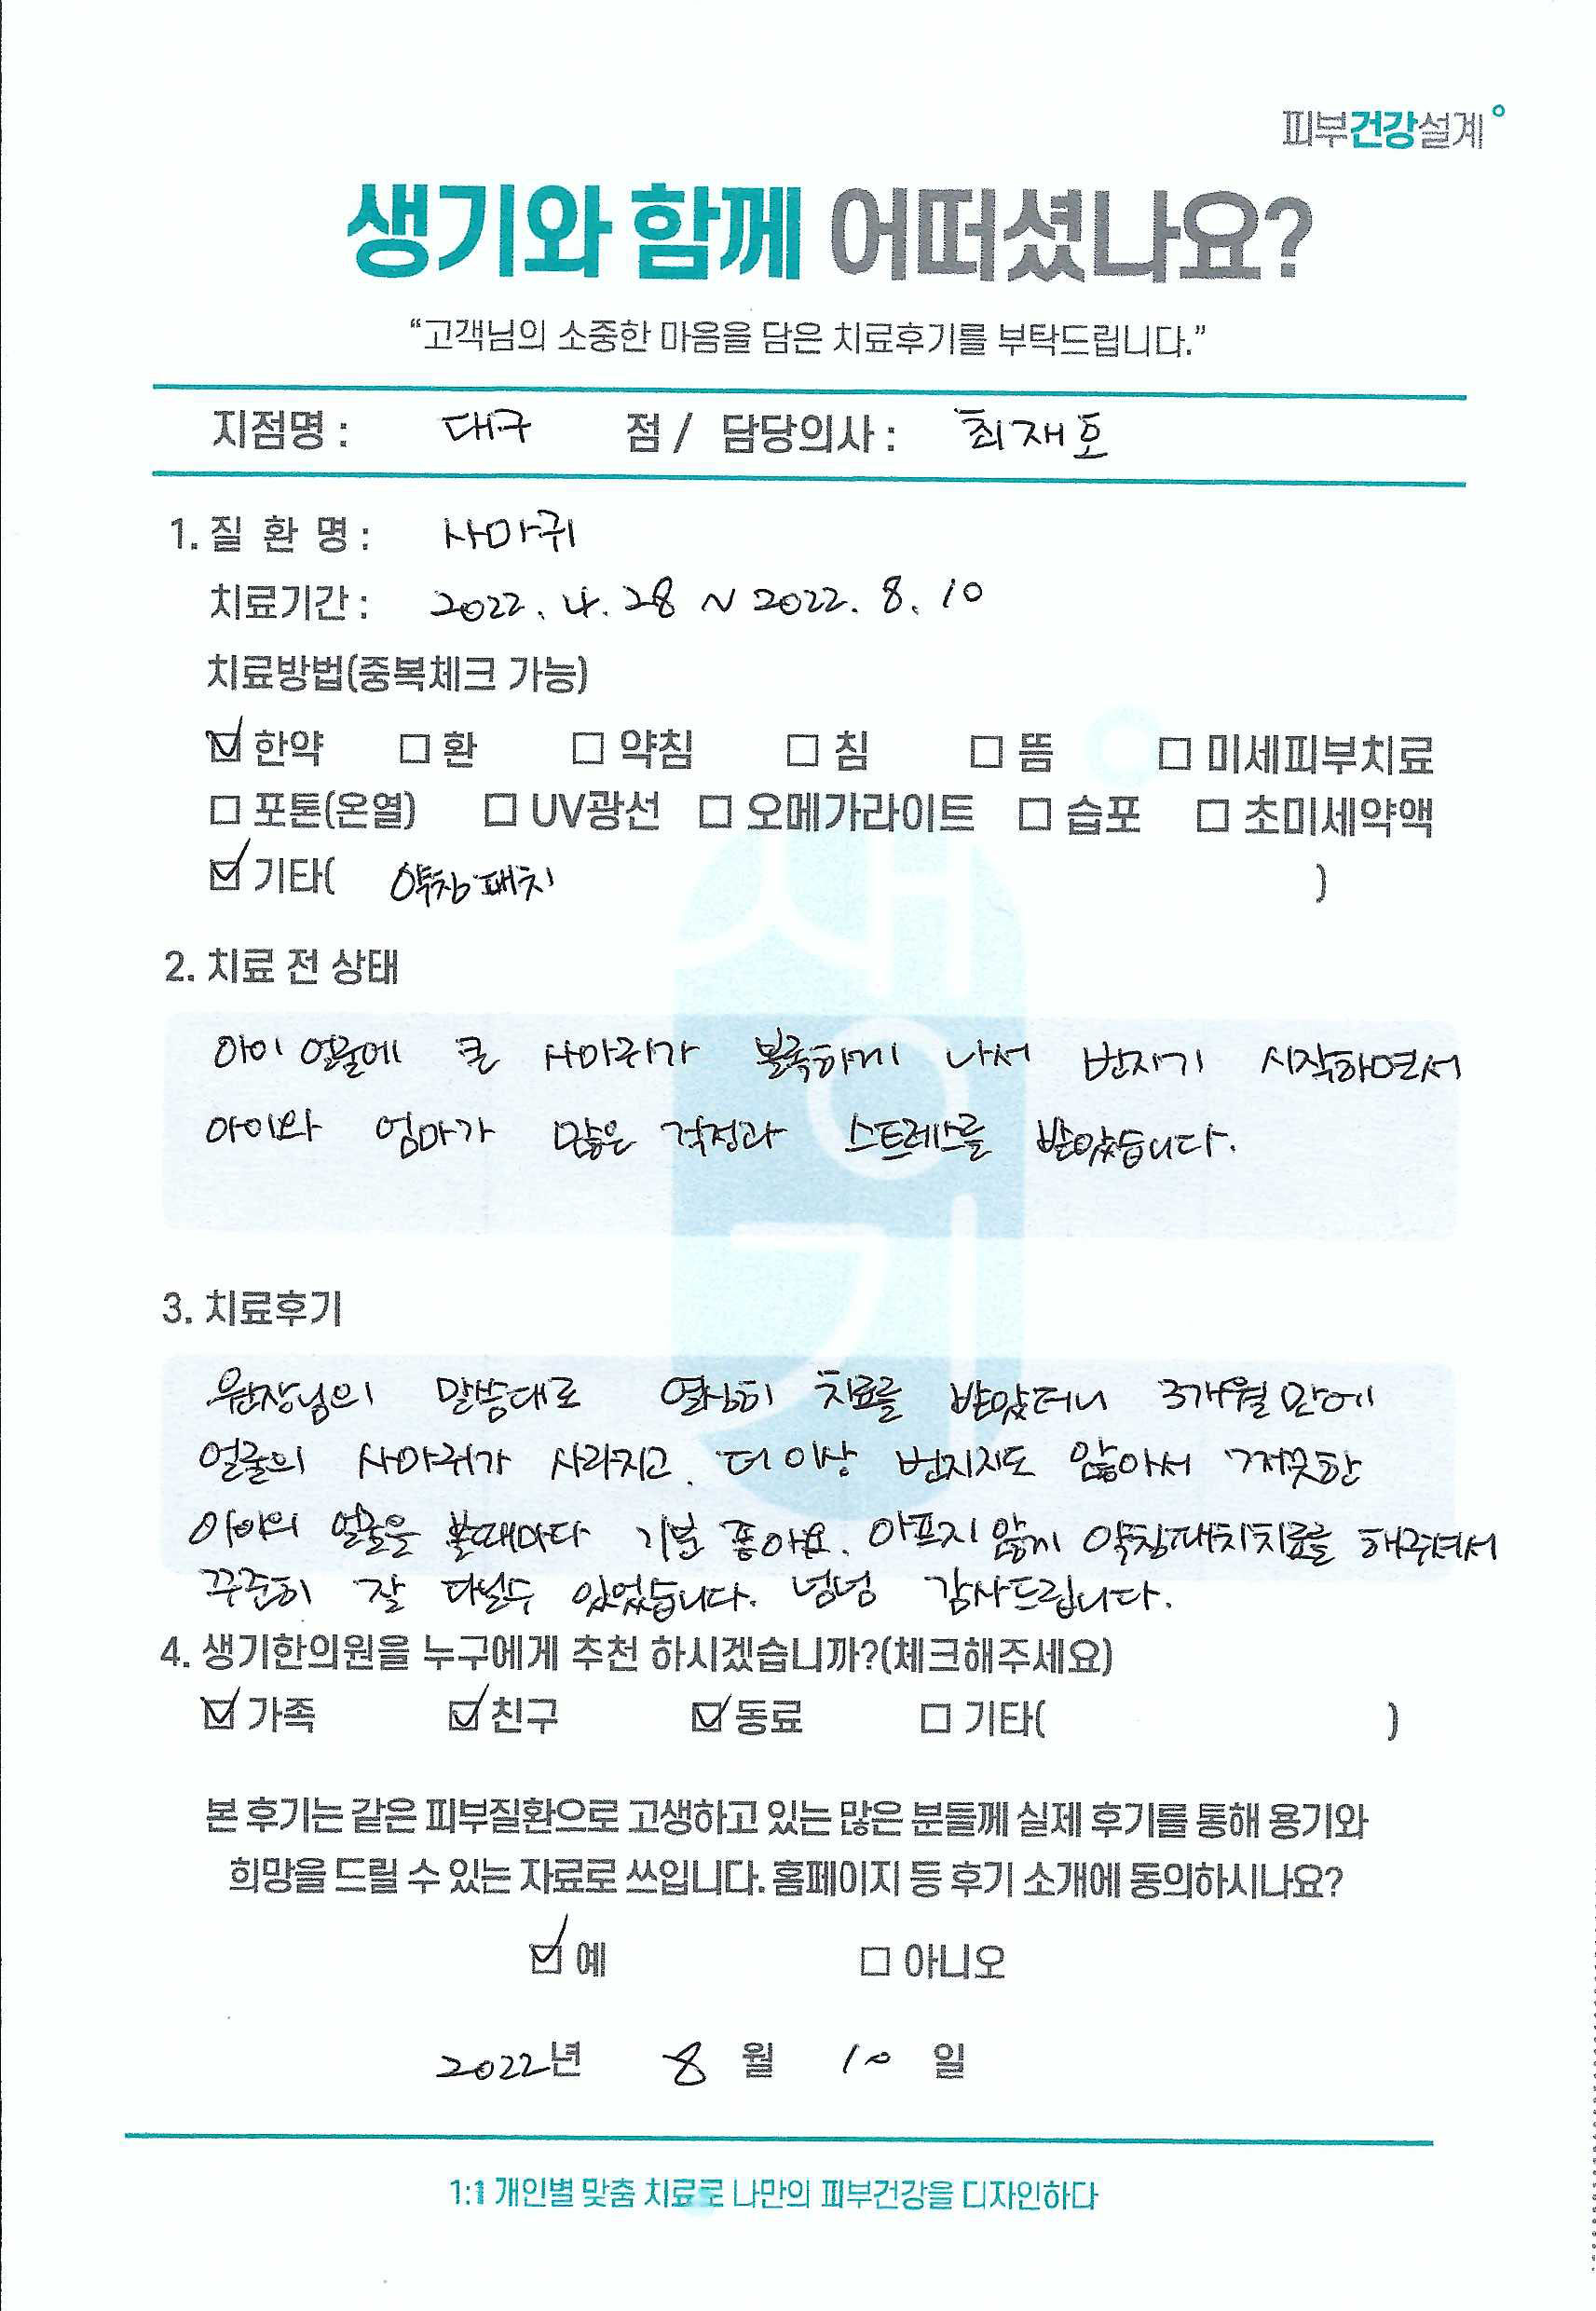 피부건강설계
생기와 함께 어떠셨나요?
“고객님의 소중한 마음을 담은 치료후기를 부탁드립니다.”
지점명 : 대구 점 / 담당의사 : 최재호
1. 질 환 명 : 사마귀
치료기간 : 2022. 4. 28 ~ 2022. 8. 10
치료방법(중복체크 가능)
☑ 한약 □ 환 □ 약침 □ 침 □ 뜸 □ 미세피부치료
□ 포톤(온열) □ UV광선 □ 오메가라이트 □ 습포 □ 초미세약액
☑ 기타( 약침패치 )
2. 치료 전 상태
아이 얼굴에 큰 사마귀가 볼록하게 나서 번지기 시작하면서
아이와 엄마가 많은 걱정과 스트레스를 받았습니다.
3. 치료후기
원장님의 말씀대로 열심히 치료를 받았더니 3개월만에
얼굴의 사마귀가 사라지고, 더이상 번지지도 않아서 깨끗한
아이의 얼굴을 볼때마다 기분 좋아요. 아프지않게 약침패치치료를 해주셔서
꾸준히 잘 다닐수 있었습니다. 넘넘 감사드립니다.
4. 생기한의원을 누구에게 추천 하시겠습니까?(체크해주세요)
☑ 가족 ☑ 친구 ☑ 동료 □ 기타( )
본 후기는 같은 피부질환으로 고생하고 있는 많은 분들께 실제 후기를 통해 용기와
희망을 드릴 수 있는 자료로 쓰입니다. 홈페이지 등 후기 소개에 동의하시나요?
☑ 예 □ 아니오
2022년 8 월 10 일
1:1 개인별 맞춤 치료로 나만의 피부건강을 디자인하다
생기